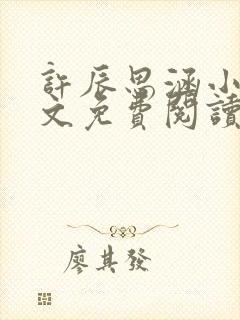 許辰思涵小
文免費閱讀
廖其發